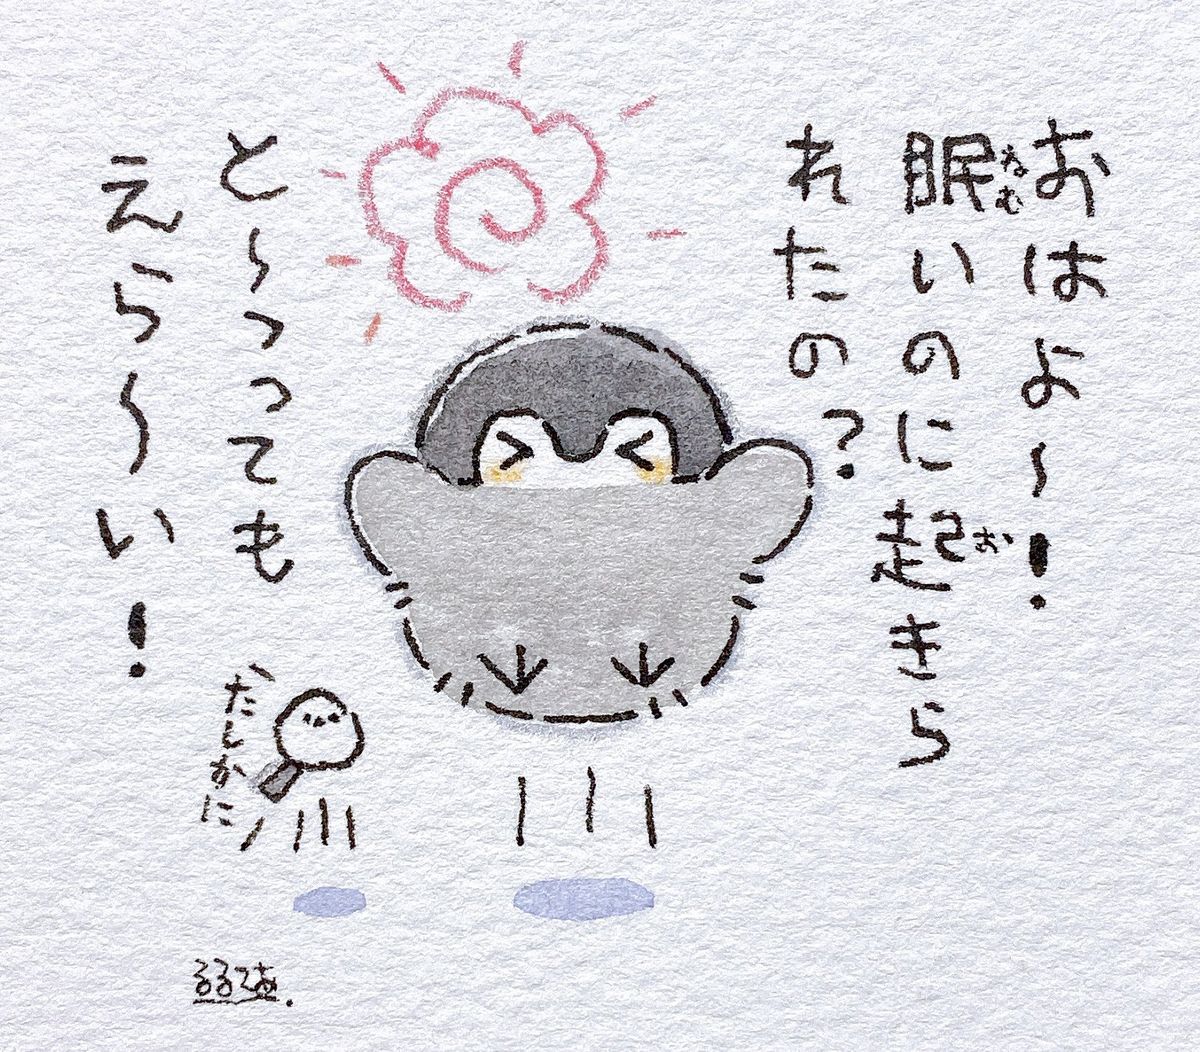 おはよ〜!
眠いのに起きら
れたの?
と〜っても
えら〜い!
たしかに
るるてあ.